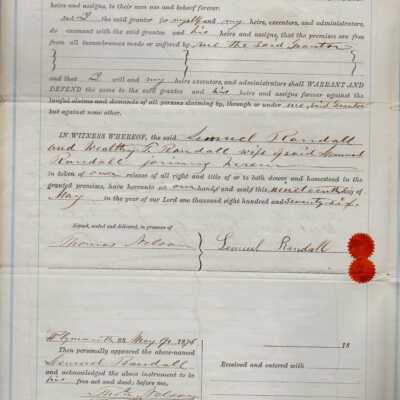 heirs and assigns, to their own use and behoof forever.
And I the said grantor for myself and my heirs, executors, and administrators,
do covenant with the said grantee and his heirs and assigns, that the premises are free
from all incumbrances made or suffered by me the said Grantor
and that I will and my heirs, executors, and administrators shall WARRANT AND
DEFEND the same to the said grantee and his heirs and assigns forever against the
lawful claims and demands of all persons claiming by, through or under me, said Grantor
but against none other.
IN WITNESS WHEREOF, the said Lemuel Randall
and Wealthy T. Randall wife of said Lemuel
Randall joining herein
in token of own release of all right and title of or to both dower and homestead in the
granted premises, have hereunto set our hands and seals this nineteenth day of
May in the year of our Lord one thousand eight hundred and Seventy six.
Signed, sealed and delivered, in presence of
Thomas Nelson Lemuel Randall
Plymouth ss May 19, 1876
Then personally appeared the above-named
Lemuel Randall
and acknowledged the above instrument to be
his free act and deed; before me,
Thos. Nelson
18
Received and entered with